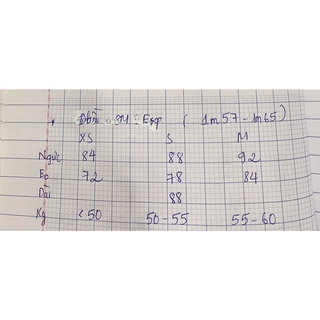 + Đầm SM : Exp ( 1m57 - 1m65 )
XS S M
Ngực 84 88 92
Eo 72 78 84
Dài 88
Kg <50 50-55 55-60